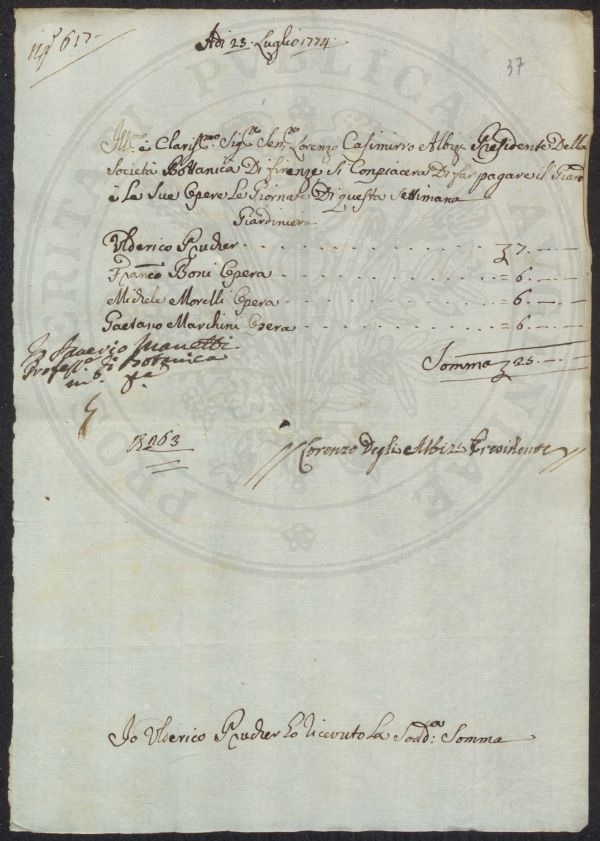 N.º 617
Adi 23 Luglio 1774
37
Ill.mo è Clariss.mo Sig.re Sen.re Lorenzo Casimirro Albizi Presidente Della
Società Bottanica Di firenze Si Conpiacera Di far pagare il Giard.
è Le Sue Opere Le Giornate Di questa Settimana
Giardiniere
Ulderico Prucher . . . . . . . . . 7. — . —
Franc.o Boni Opera . . . . . . . . = 6. — . —
Michele Morelli Opera . . . . . . . = 6. — . —
Gaetano Marchini Opera . . . . . . . = 6. — . —
Somma 25 — . —
Saverio Manetti
Profess.e di Botanica
m.o p.a
63
Lorenzo Degli Albizi Presidente
Io Ulderico Prucher ho ricevuto La Sodd.a Somma
PROSPERITATI PVBLICAE AVGENDAE